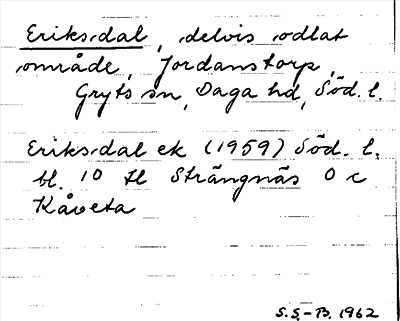 Eriksdal, delvis odlat
område, Jordanstorp,
Gryts sn, Daga hd, Söd. l.
Eriksdal ek (1959) Söd. l.
bl. 10 tl Strängnäs 0 c
Kåveta
S.S.-B. 1962